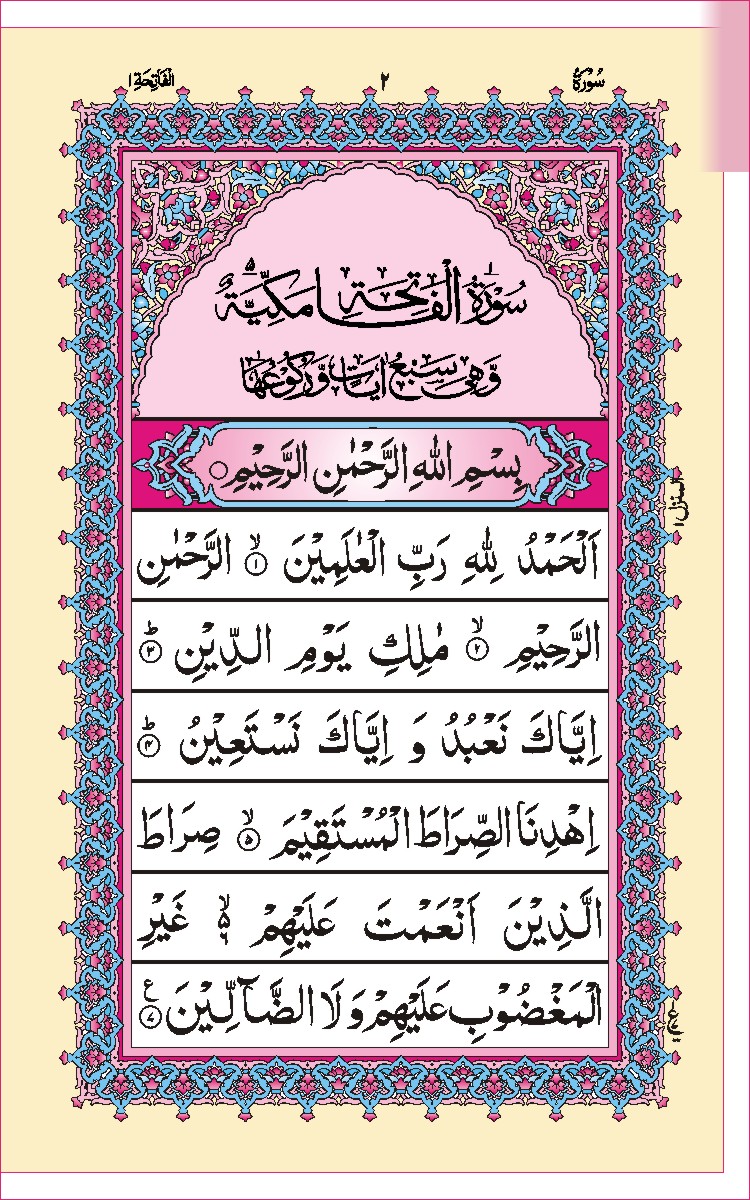 سُوْرَةُ ٢ الْفَاتِحَةِ ١
سُوْرَةُ الْفَاتِحَةِ مَكِّيَّةٌ
وَّهِىَ سَبْعُ اٰيَاتٍ وَّرُكُوْعُهَا
بِسْمِ اللّٰهِ الرَّحْمٰنِ الرَّحِيْمِ ۝
اَلْحَمْدُ لِلّٰهِ رَبِّ الْعٰلَمِيْنَ ۙ﴿١﴾ الرَّحْمٰنِ
الرَّحِيْمِ ۙ﴿٢﴾ مٰلِكِ يَوْمِ الدِّيْنِ ؕ﴿٣﴾
اِيَّاكَ نَعْبُدُ وَ اِيَّاكَ نَسْتَعِيْنُ ؕ﴿٤﴾
اِهْدِنَا الصِّرَاطَ الْمُسْتَقِيْمَ ۙ﴿٥﴾ صِرَاطَ
الَّذِيْنَ اَنْعَمْتَ عَلَيْهِمْ ۙ۵ ٦ غَيْرِ
الْمَغْضُوْبِ عَلَيْهِمْ وَ لَا الضَّآلِّيْنَ ع﴿٧﴾
المنزل ١
ع